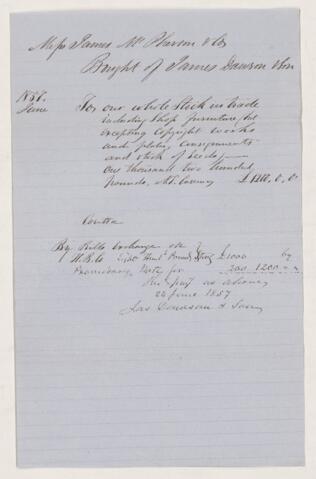 Messrs James Mc Pherson & Co
Bought of James Dawson & Son
1857.
June
To our whole Stock in trade
including Shop furniture, but
excepting Copyright works
and plates, consignments
and stock of Seeds,—
One thousand two hundred
Pounds, Currency £1200,0,0
Contra
By Bills Exchange
£1000
Promissory Note for 200 1200
as above,
24 June 1857
Jas Dawson & Son